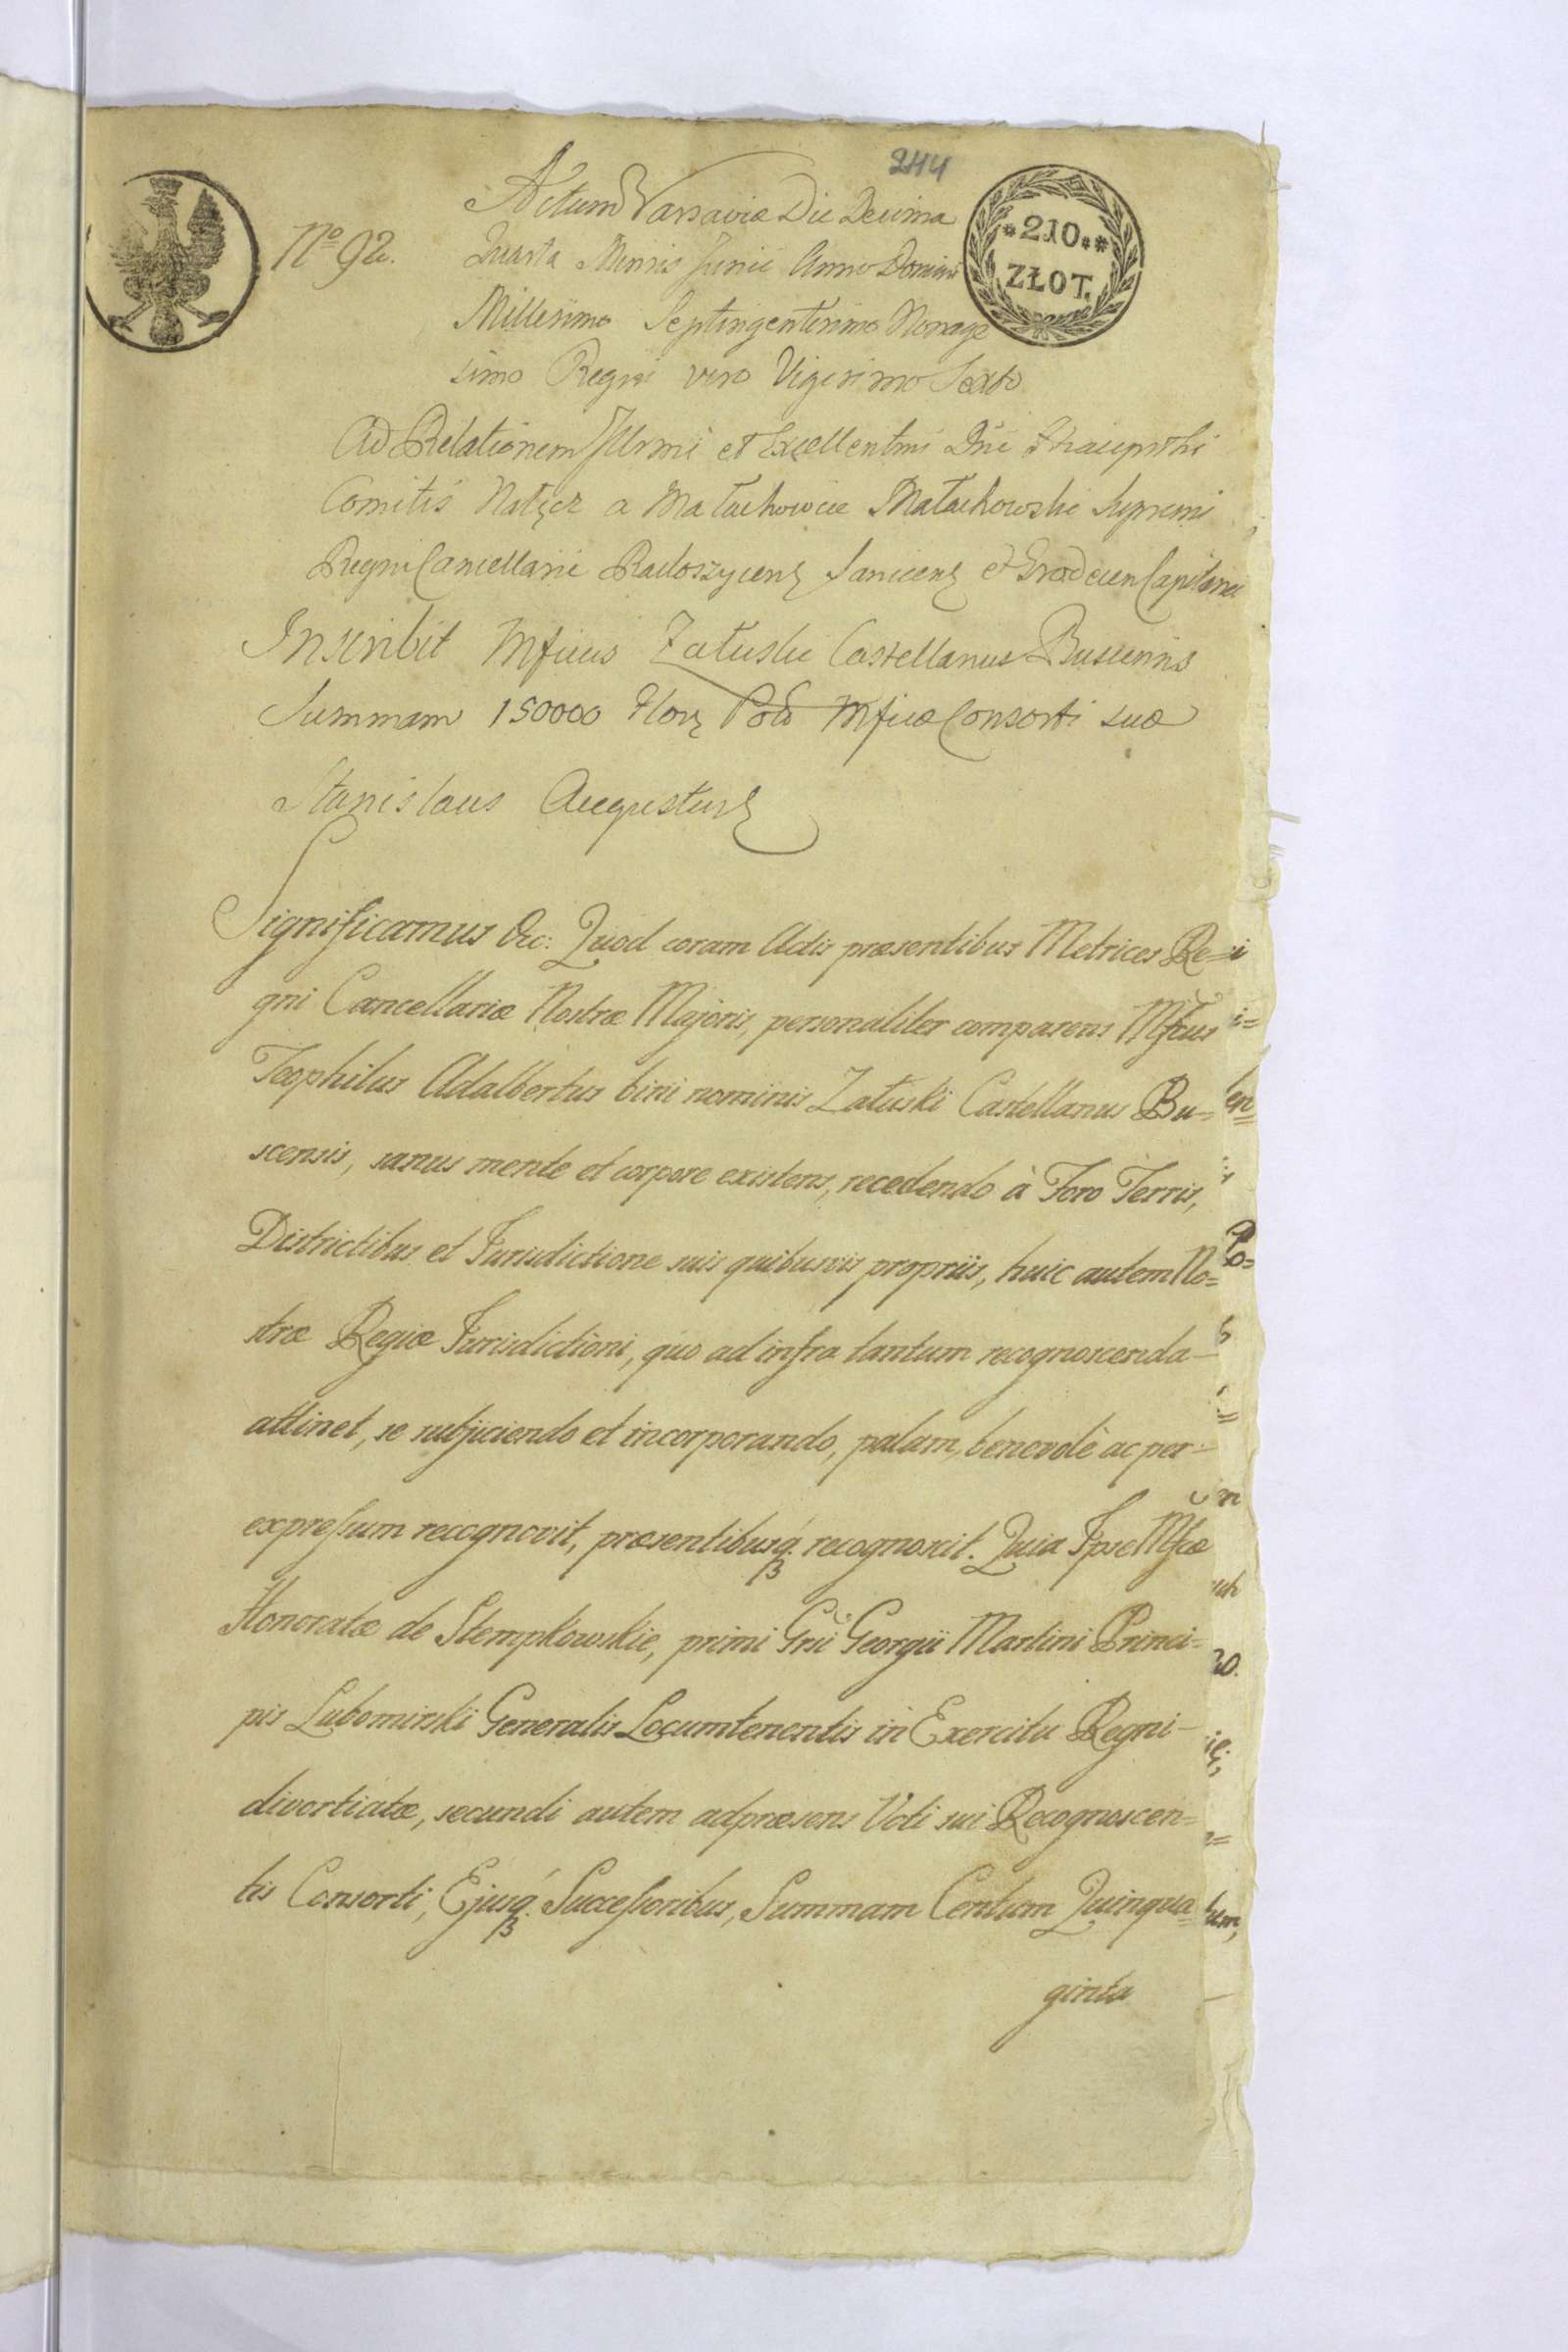 244
Actum Varsaviæ Die Decima
*210**
ZŁOT.
Nº 92.
Quarta Mensis Junii Anno Domini
Millesimo Septingentesimo Nonage
simo Regni vero Vigesimo Sexto
Ad Relationem Illrmi et Excellentmi Dñi
Comitis Nałęcz a Małachowice Małachowski Supremi
Regni Cancellarii Radoszycen Sanicen et Grodecen Capitanei
Inscribit Mficus Załuski Castellanus Buscensis
Summam 150000 Flor Pol Mficæ Consorti suæ
Stanislaus Augustus
Significamus &c: Quod coram Actis præsentibus Metrices Re=
gni Cancellariæ Nostræ Majoris, personaliter comparens Mfcus
Teophilus Adalbertus bini nominis Załuski Castellanus Bu=
scensis, sanus mente et corpore existens, recedendo à Foro Terris,
Districtibus et Jurisdictione suis quibusvis propriis, huic autem No=
stræ Regiæ Jurisdictioni, quo ad infra tantum recognoscenda
attinet, se subjiciendo et incorporando, palam, benevolè ac per
expreſsum recognovit, præsentibusq. recognoscit. Quia Ipse Mfcæ
Honoratæ de Stempkowskie, primi Grsi Georgii Martini Princi=
pis Lubomirski Generalis Locumtenentis in Exercitu Regni
divortiatæ, secundi autem adpræsens Voti sui Recognoscen=
tis Consorti, Ejusq. Succeſsoribus, Summam Centum Quinqua=
ginta